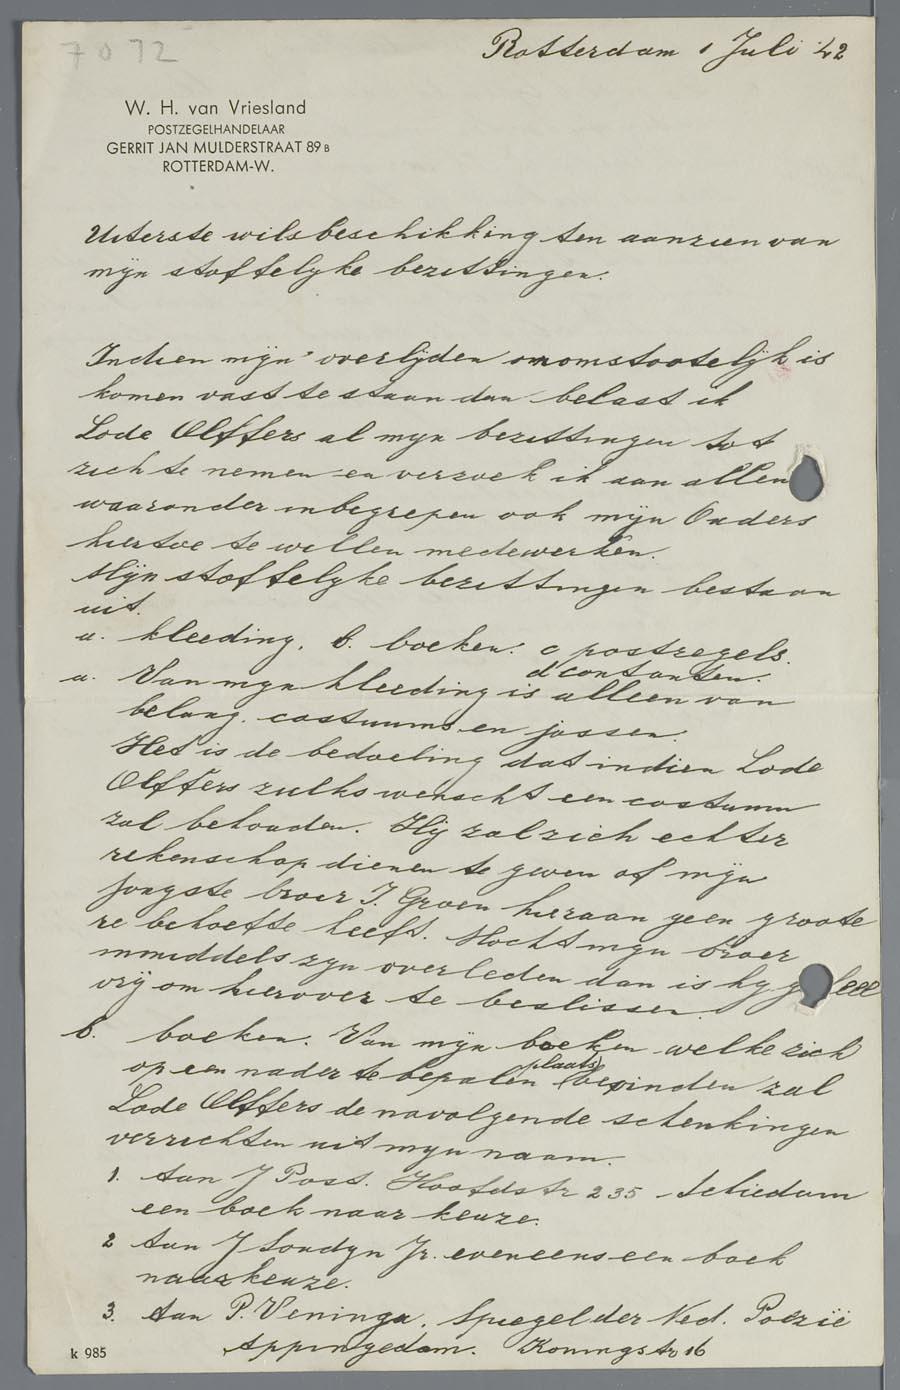 7072
Rotterdam 1 Juli '42
W. H. van Vriesland
POSTZEGELHANDELAAR
GERRIT JAN MULDERSTRAAT 89 B
ROTTERDAM-W.
Uiterste wilsbeschikking ten aanzien van
mijn stoffelyke bezittingen.
Indien mijn overlijden onomstootelijk is
komen vast te staan dan belast ik
Lode Olffers al mijn bezittingen tot
zich te nemen en verzoek ik aan allen
waaronder inbegrepen ook mijn Ouders
hiertoe te willen medewerken.
Mijn stoffelyke bezittingen bestaan
uit.
a. kleeding, b. boeken. c postzegels.
d contanten.
a. Van mijn kleeding is alleen van
belang. costuums en jassen.
Het is de bedoeling dat indien Lode
Olffers zulks wenscht een costuum
zal behouden. Hij zal zich echter
rekenschap dienen te geven of mijn
jongste broer I. Groen hieraan geen groote
re behoefte heeft. Mocht mijn broer
inmiddels zyn overleden dan is hy g leel
vrij om hierover te beslissen.
b. boeken. Van mijn boeken welke zich
op een nader te bepalen plaats bevinden zal
Lode Olffers de navolgende schenkingen
verrichten uit mijn naam.
1. Aan J Post. Hoofdstr 235 - Schiedam
een boek naar keuze.
2 Aan J Sondyn Jr. eveneens een boek
naar keuze.
3. Aan P. Veninga. Spiegel der Ned. Poëzië
Appingedam. Koningstr 16
k 985